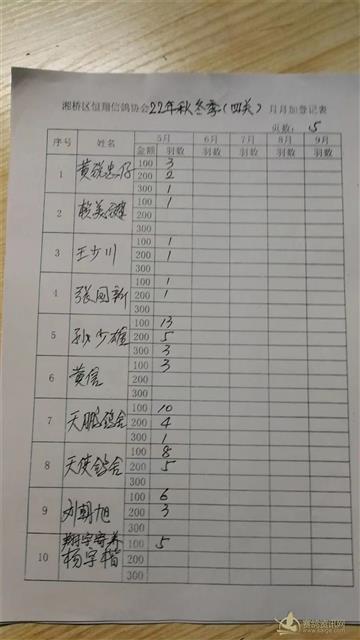 湘桥区恒翔信鸽协会22年秋冬季(四关)月月加登记表
页数: 5
序号 姓名 5月 6月 7月 8月 9月
金额 羽数 羽数 羽数 羽数 羽数
1 黄锐忠仔 100 3
200 2
300 1
2 100 1
200
300
3 王少川 100 1
200 1
300
4 张国新 100 1
200 1
300
5 孙少雄 100 13
200 5
300 3
6 黄信 100 3
200
300
7 天鹏鸽舍 100 10
200 4
300 1
8 天使鸽舍 100 8
200 5
300
9 刘朝旭 100 6
200 3
300
10 翔宇寄养 杨宇楷 100 5
200
300
赛鸽资讯网